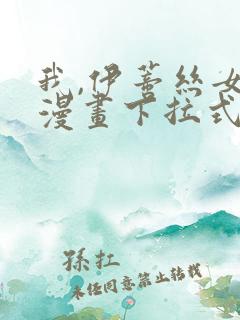 我,伊蕾丝女
漫畫下拉式
孫扛
未经同意禁止转载